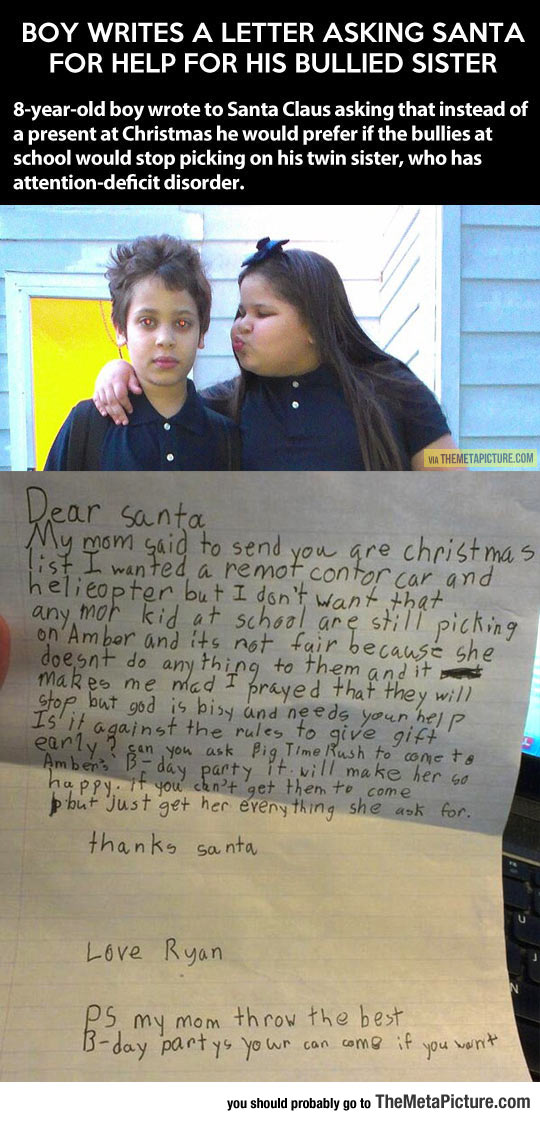 BOY WRITES A LETTER ASKING SANTA
FOR HELP FOR HIS BULLIED SISTER
8-year-old boy wrote to Santa Claus asking that instead of
a present at Christmas he would prefer if the bullies at
school would stop picking on his twin sister, who has
attention-deficit disorder.
VIA THEMETAPICTURE.COM
Dear santa
My mom said to send you are christmas
list I wanted a remot contor car and
helicopter but I don't want that
any mor kid at school are still picking
on Amber and its not fair because she
doesnt do any thing to them and it
makes me mad I prayed that they will
stop but god is bisy and needs your help
Is it against the rules to give gift
early? can you ask Big Time Rush to come to
Amber's B-day party it will make her so
happy. if you can't get them to come
but just get her everything she ask for.
thanks santa
Love Ryan
PS my mom throw the best
B-day partys your can come if you want
U
J
N
you should probably go to TheMetaPicture.com